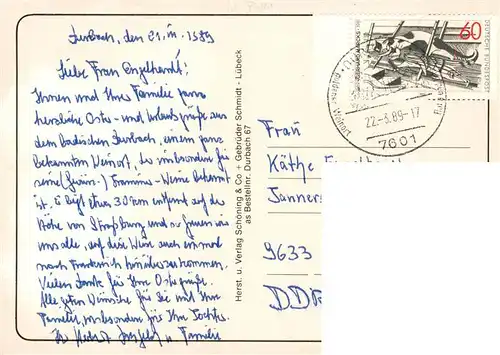 Durbach, den 21.III.1989
Liebe Frau Engelhardt!
Ihnen und Ihrer Familie ganz
herzliche Oster- und Urlaubsgrüße aus
dem badischen Durbach, einem ganz
bekannten Weinort, der insbesondere für
seine Traminer-Weine bekannt
ist. Er liegt etwa 30 km entfernt auf der
Höhe von Straßburg und so freuen wir
uns alle, auf diese Weise auch einmal
nach Frankreich hinüberzukommen.
Vielen Dank für Ihre Ostergrüße.
Alle guten Wünsche für Sie und Ihre
Familie, insbesondere für Ihre Tochter.
Ihr Herbert u. Familie
Herst. u. Verlag Schöning & Co + Gebrüder Schmidt · Lübeck
as Bestellnr. Durbach 67
60
DEUTSCHE BUNDESPOST
22.-3.89-17
7601
Frau
Käthe
9633
DDR